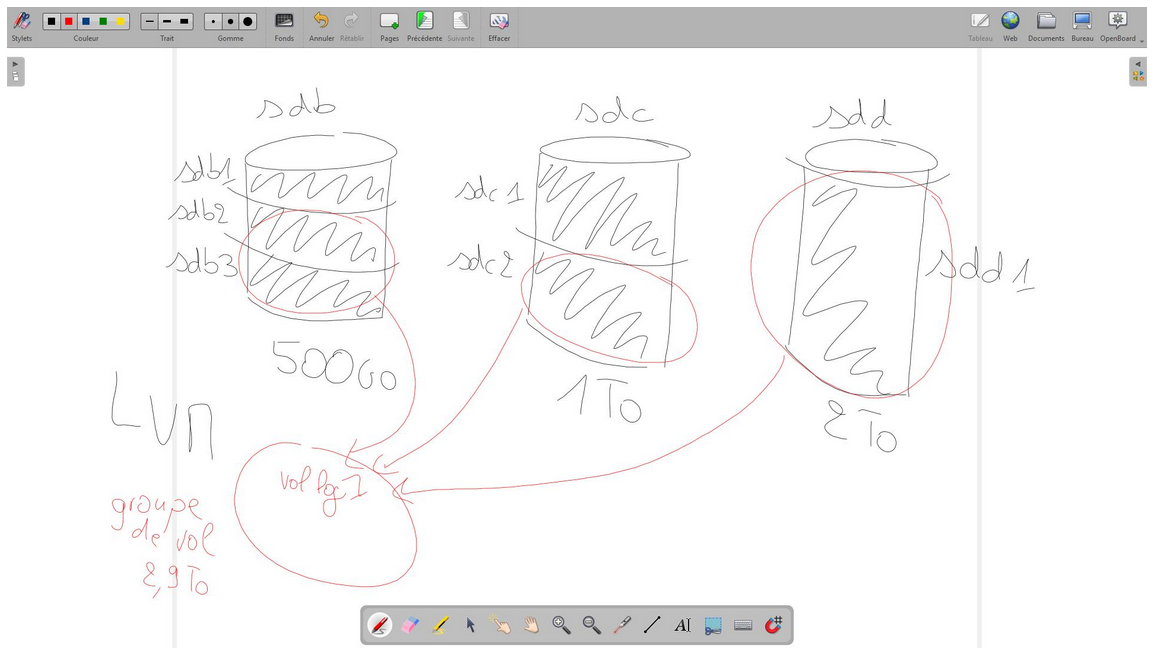 Stylets Couleur Trait Gomme Fonds Annuler Rétablir Pages Précédente Suivante Effacer Tableau Web Documents Bureau OpenBoard
sdb sdc sdd
sdb1
sdc1
sdb2
sdb3 sdc2 sdd1
500Go
1To
2To
LVM
groupe
de vol
2,9To
AI